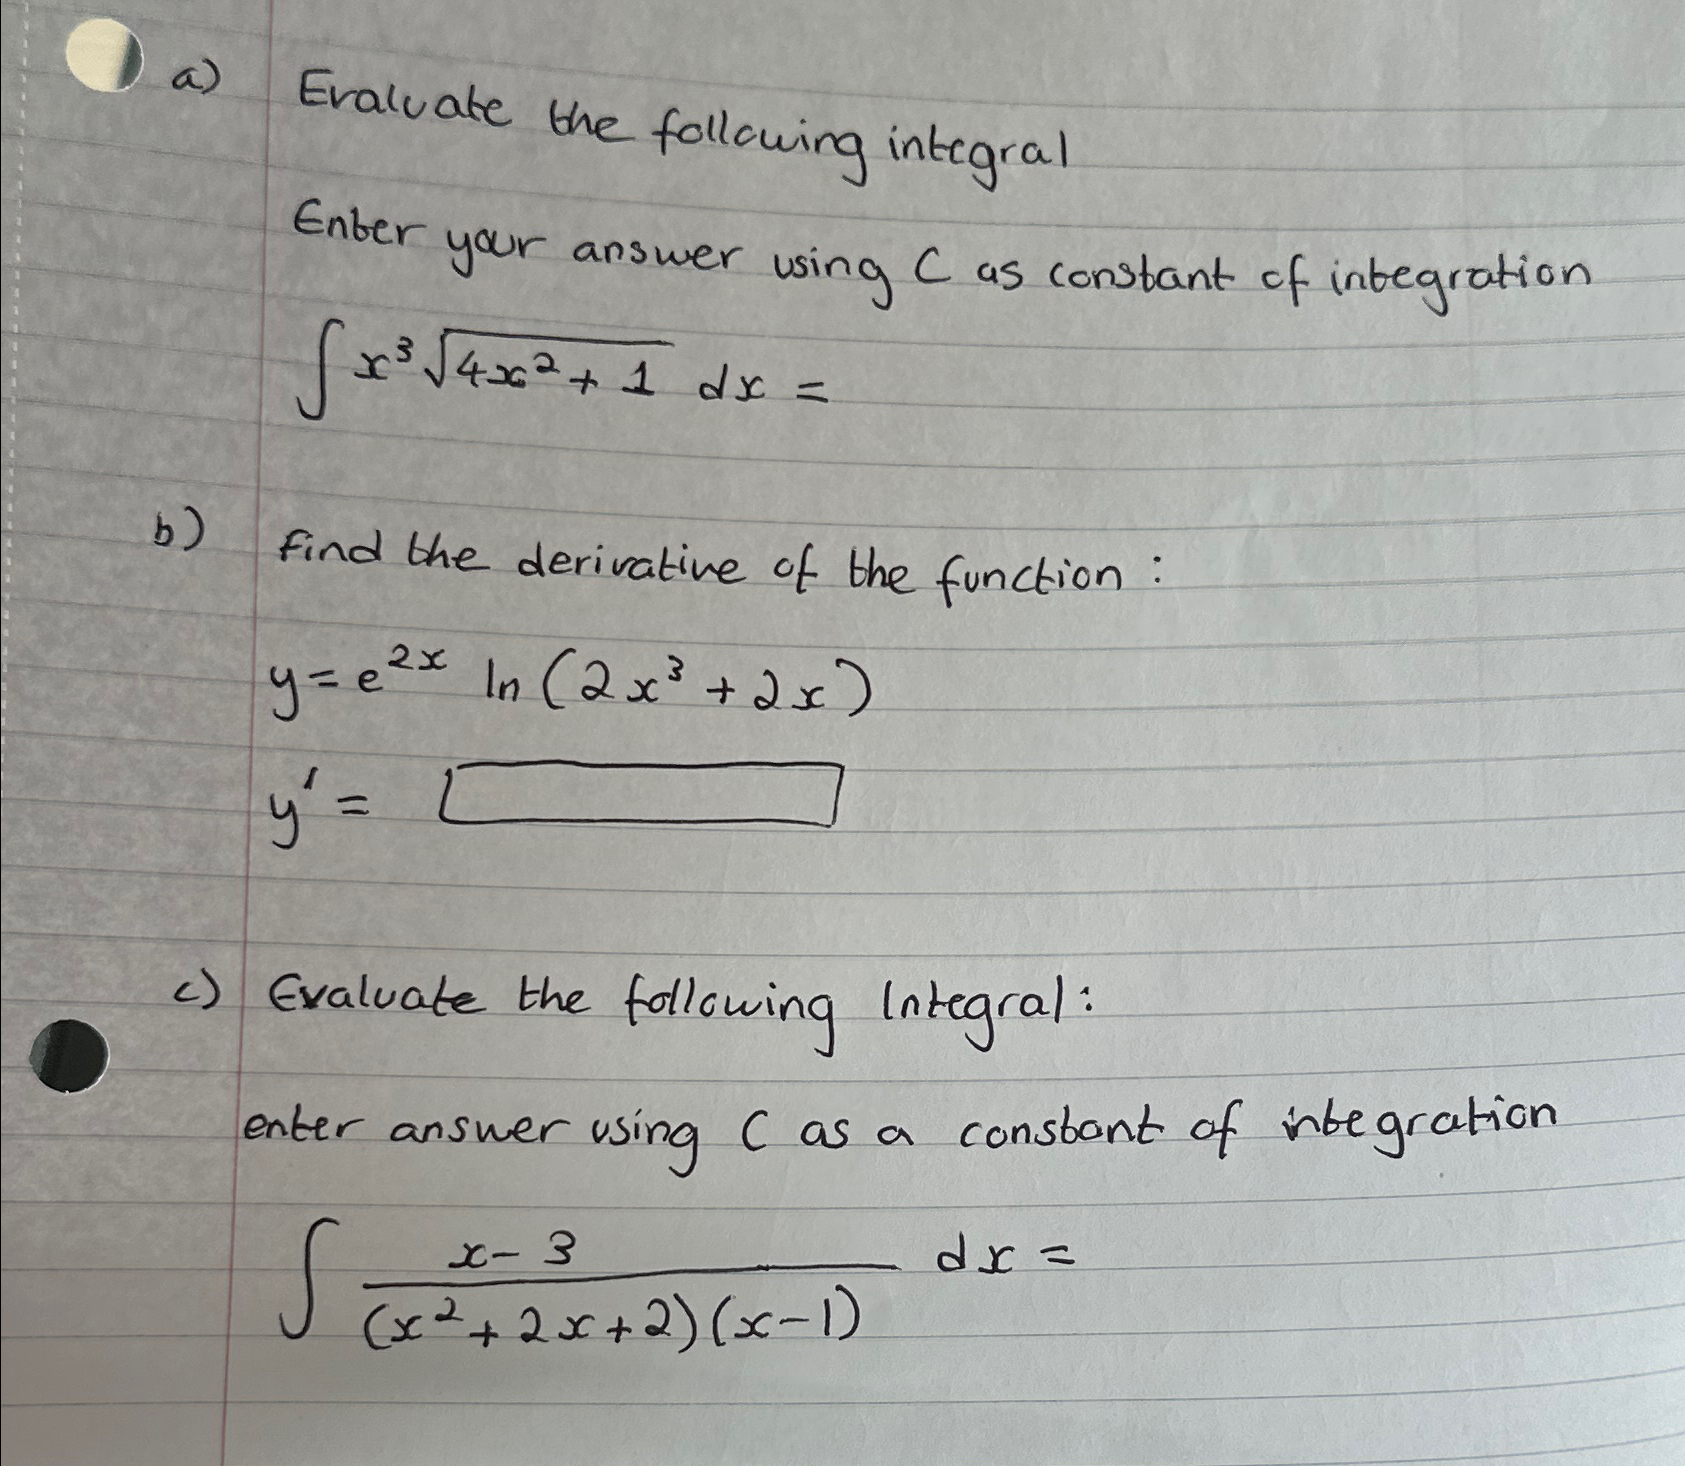 a) Evaluate the following integral
Enter your answer using C as constant of integration
∫ x³ √(4x² + 1) dx =
b) find the derivative of the function :
y = e^(2x) ln (2x³ + 2x)
y' =
c) Evaluate the following Integral :
enter answer using C as a constant of integration
∫ (x - 3) / ((x² + 2x + 2)(x - 1)) dx =